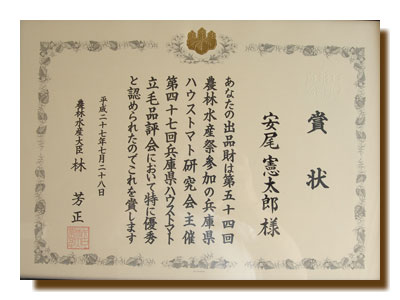 賞状
安尾憲太郎様
あなたの出品財は第五十四回
農林水産祭参加の兵庫県
ハウストマト研究会主催
第四十七回兵庫県ハウストマト
立毛品評会において特に優秀
と認められたのでこれを賞します
平成二十七年七月二十八日
農林水産大臣 林芳正